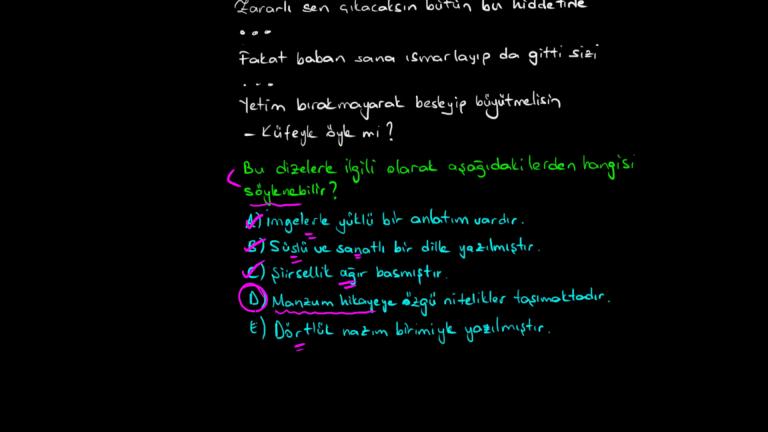 Zararlı sen çıkacaksın bütün bu hiddetine
...
Fakat baban sana ısmarlayıp da gitti sizi
...
Yetim bırakmayarak besleyip büyütmelisin
- Küfeyle öyle mi?
Bu dizelerle ilgili olarak aşağıdakilerden hangisi
söylenebilir?
A) İmgelerle yüklü bir anlatım vardır.
B) Süslü ve sanatlı bir dille yazılmıştır.
C) Şiirsellik ağır basmıştır.
D) Manzum hikayeye özgü nitelikler taşımaktadır.
E) Dörtlük nazım birimiyle yazılmıştır.